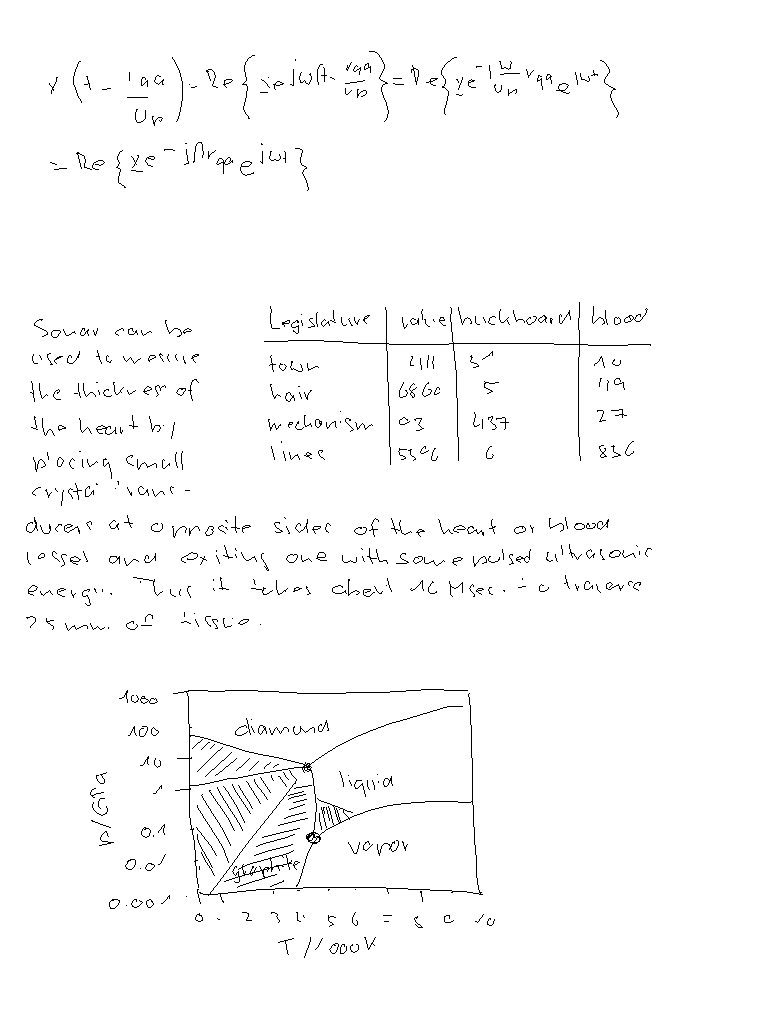 x(t - r_qa/v_p) = Re{x e^jω(t - r_qa/v_p)} = Re{x e^-j ω/v_p r_qa e^jωt}
= Re{x e^-jβr_qa e^jωt}
Sonar can be
used to
the thickness of
the heart by
placing small
crystal trans-
ducers at opposite sides of the heart or blood
vessel and exiting one with some pulsed ultrasonic
energy. Thus it takes about 16 Msec. to traverse
25 mm. of tissue.
Legislature value buckboard blood
town 411 51 10
hair 6860 5 119
mechanism 03 437 27
lines 5596 6 836
1000
100
10
1
0.1
0.01
0.001
p/GPa
diamond
liquid
vapor
graphite
0 2 3 4 5 6 8 9 10
T/1000K